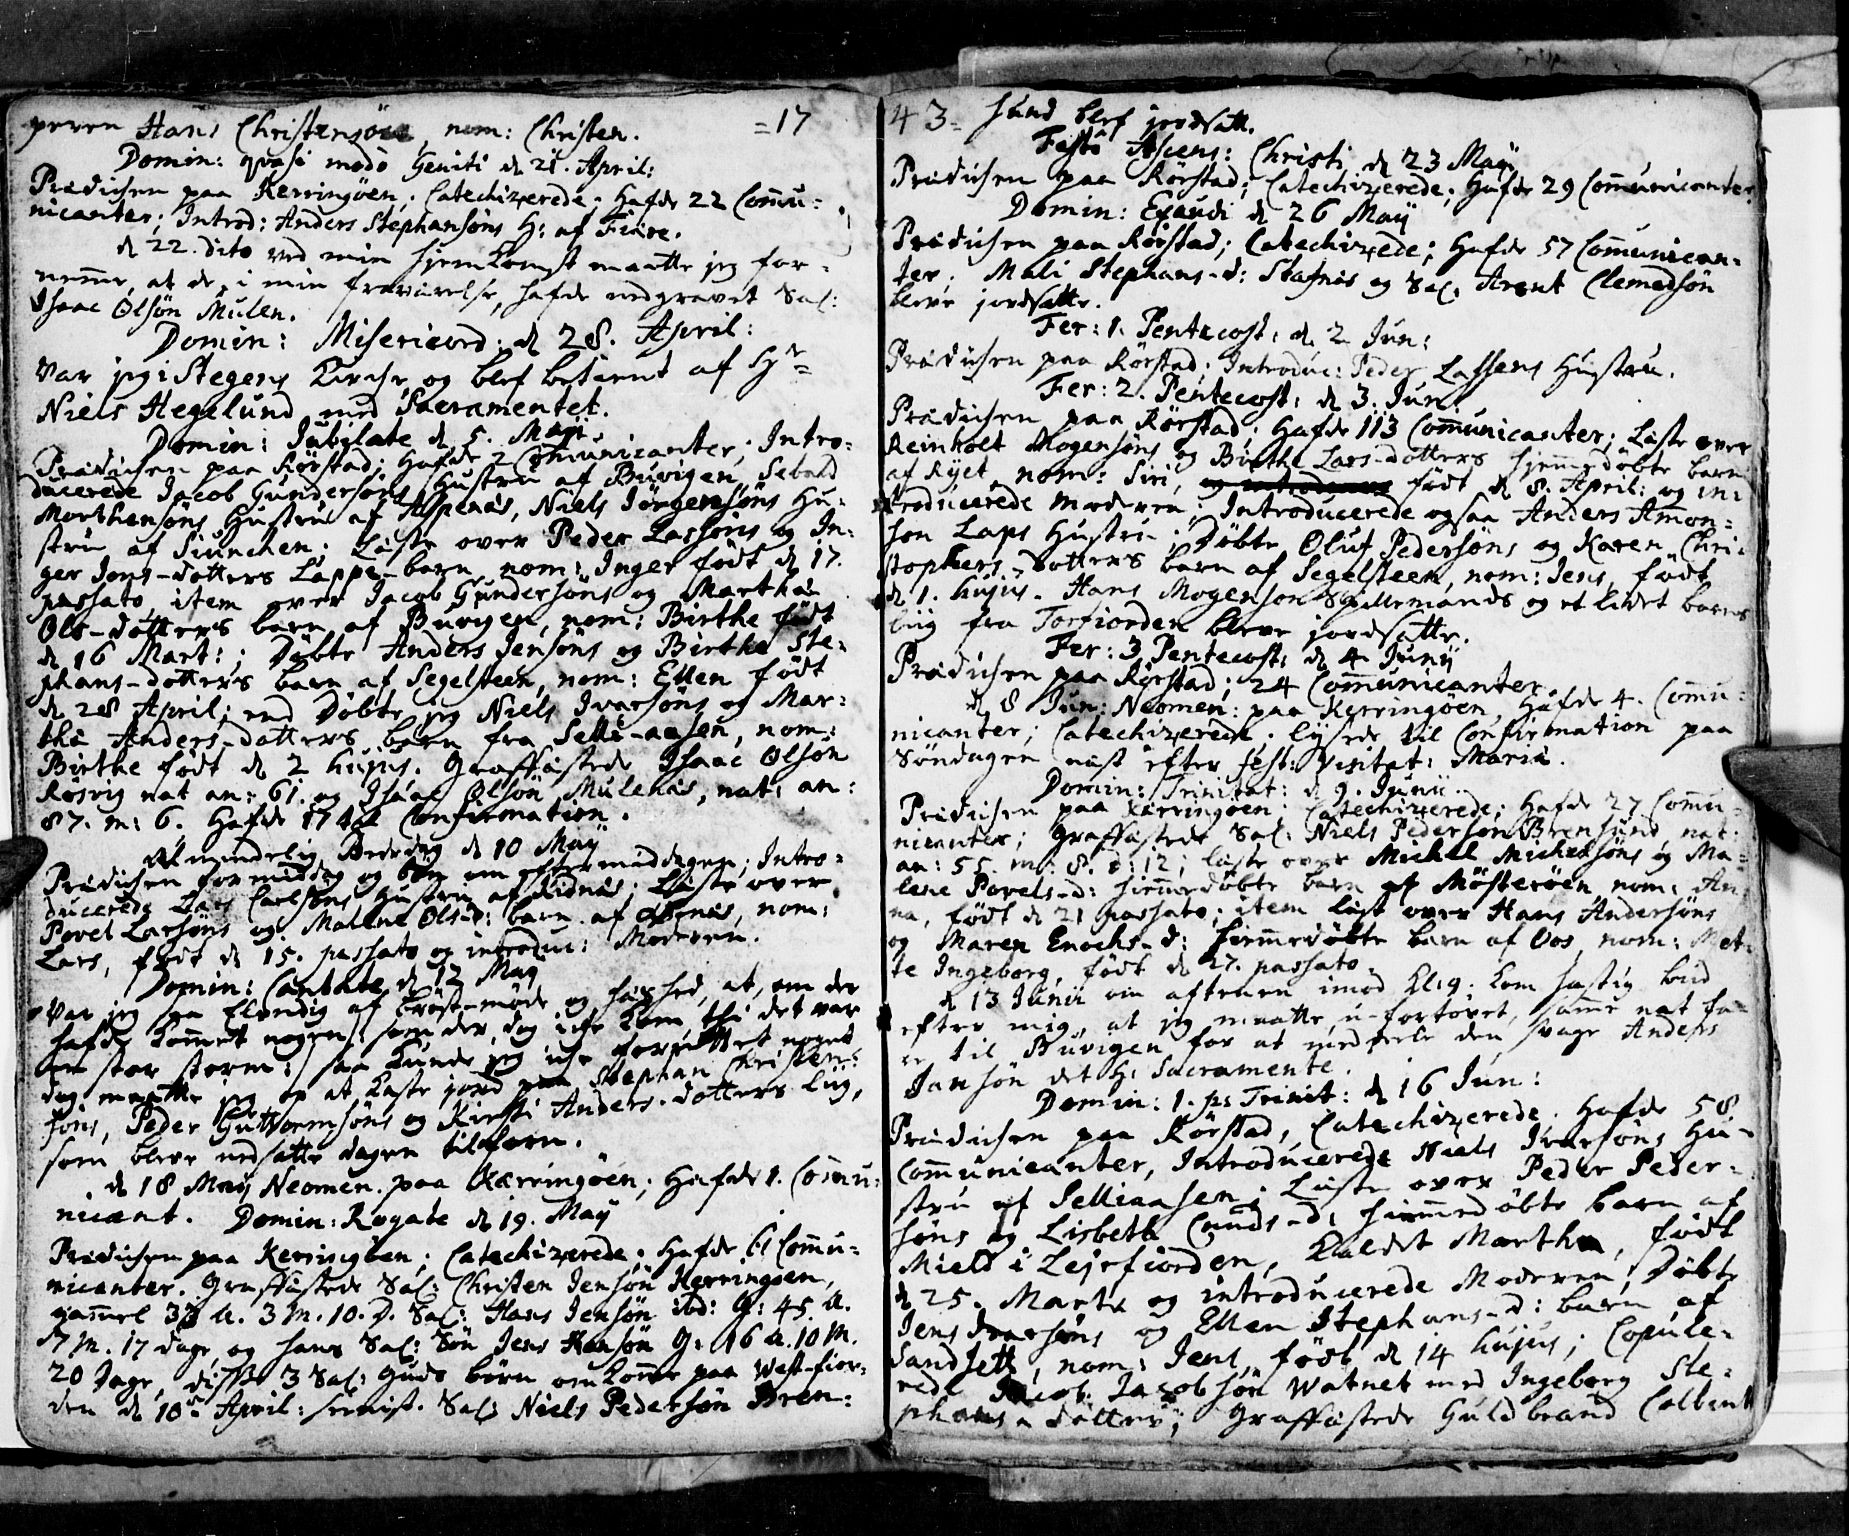 peren Hans Christensøns, nom: Christen. =17
Domin: qvasi modò Geniti d 21. April:
Prædichen paa Kerringöen; Catechizerede; Hafde 22 Com̄u=
nicanter; Introd: Anders Stephansöns H: af Fiære.
d 22. dito ved min hjemkomst maatte jeg for=
nem̄e, at de, i min fraværelse, hafde nedgravet Sal:
Isaac Olsön Mulen.
Domin: Misericord: d 28. April:
Var jeg i Stegens Kirche og blef betient af Hr
Niels Hegelund med Sacramentet.
Domin: Jubilate d 5. Maji
Prædichen paa Rörstad; Hafde 2 Com̄unicanter; Intro=
ducerede Jacob Gundersöns Hustru af Buvigen, Sebald
Morthensöns Hustru af Aspenæs, Niels Jörgensöns Hu=
stru af Siunchen; Læste over Peder Lassöns og In=
ger Jons-dotters Lappe-barn, nom: Inger födt d 17.
passato, item over Jacob Gundersöns og Martha
Ols-dotters barn af Buvigen, nom: Birthe födt
d 16 Mart:; Döbte Anders Jensöns og Birthe Ste=
phans-dotters barn af Segelsteen, nom: Ellen födt
d 28 April; end Döbte jeg Niels Ivarsöns og Mar=
the Anders-dotters barn fra Selli-aasen, nom:
Birthe födt d 2 hujus. Graffæstede Isaac Olsön
Røsvig nat an: 61. og Isaac Olsön Mulenæs, nat: an:
87. m: 6. Hafde 1742 Confirmation.
Almindelig Bededag d 10 Maÿ
Prædichen formiddag og bön om eftermiddagen; Intro=
ducerede Lars Carlsöns Hustru af Ridnæs; Læste over
Povel Larsöns og Malene Ols-d: barn af Aspnæs, nom:
Lars, födt d 15. passato og introduc: Moderen.
Domin: Cantate d 12 May
Var jeg saa elendig af bröst-möde og haished, at, om der
hafde kom̄et nogen: som der dog iche kom, thi det var
en stor storm: saa kunde jeg iche forrettet noget
dog maatte jeg op at kaste jord paa Stephan Christen=
söns, Peder Guttormsöns og Kirsti Anders-dotters liig,
som bleve nedsatte dagen tilforn.
d 18 Maÿ Neomen. paa Kærringöen; Hafde 1. Com̄u=
nicant. Domin: Rogate d 19. Maÿ
Prædichen paa Kerringöen; Catechizerede; Hafde 61 Com̄u=
nicanter. Graffæstede Sal: Christen Jensön Kerringöen,
gam̄el 33 A. 3 M. 10. D. Sal: Hans Jensön ibd: G: 45. A.
7 M. 17 dage, og hans Sal: Sön Jens Hansön G: 16 A. 10 M.
20 Dage, disse 3 Sal: Guds börn omkom̄e paa West-fior=
den d 10de April: Sal: Niels Pedersön Bren=
43= sund blef jordsatt.
Festo Ascens: Christi d 23 Maÿ
Prædichen paa Rörstad; Catechizerede; Hafde 29 Com̄unicanter
Domin: Exaudi d 26 Maÿ
Prædichen paa Rörstad; Catechizerede; Hafde 57 Com̄unican=
ter. Mali Stephans-d: Stafnæs og Sal: Arent Clemedsön
bleve jordsatte.
Fer: 1. Pentecost: d 2 Jun:
Prædichen paa Rörstad; Introduc: Peder Lassens Hustru.
Fer: 2. Pentecost: d 3. Jun:
Prædichen paa Rörstad; Hafde 113 Com̄unicanter; Læste over
Reinholt Mogensöns og Birthe Lars-dotters hjem̄edöbte barn
af Rÿet, nom: Siri, födt d 8. April: og in=
troducerede Moderen; Introducerede ogsaa Anders Amon=
sön Laps Hustru; Döbte Oluf Pedersöns og Karen Chri=
stophers-dotters barn af Segelsteen, nom: Jens, födt
d 1. hujus. Hans Mogensön Spillemands og et lidet barns
liig fra Torfiorden bleve jordsatte.
Fer: 3 Pentecost: d 4 Junÿ
Prædichen paa Rörstad; 24 Com̄unicanter.
d 8 Jun: Neomen: paa Kerringöen, Hafde 4. Com̄u=
nicanter; Catechizerede. lÿsede til Confirmation paa
Söndagen næst efter fest: Visitat: Mariæ.
Domin: Trinitat: d 9. Junii.
Prædichen paa Kerringöen; Catechizerede; Hafde 27 Com̄u=
nicanter; Graffæstede Sal: Niels Pedersön Brensund, nat:
an: 55. m: 8. d: 12; læste over Michel Michelsöns og Ma=
lene Povels-d: hiem̄edöbte barn af Mösteröen, nom: An=
na, födt d 21 passato; item læst over Hans Andersöns
og Maren Enochs-d: hiem̄edöbte barn af Oos, nom: Met=
te Ingeborg, födt d 27. passato.
d 13 Junii om aftenen imod Kl: 9. kom hastig bud
efter mig, at jeg maatte, u-fortövet, sam̄e nat fa=
re til Buvigen for at meddeele den svage Anders
Jansön det H: Sacramente.
Domin: 1. p: Trinit: d 16 Jun:
Prædichen paa Rörstad, Catechizerede. Hafde 58
Com̄unicanter, Introducerede Niels Ivarsöns Hu=
stru af Selliaasen; Læste over Peder Peder=
söns og Lisbeth Cnuds-d: hiem̄edöbte barn af
Mield i Lejrfiorden, kaldet Martha, födt
d 25. Martii og introducerede Moderen, Döbte
Jens Ivarsöns og Ellen Stephans-d: barn af
Sandsett, nom: Jens, födt d 14 hujus; Copule=
rede Jacob Jacobsön Watnet med Ingeborg Ste=
phans-dotter; Graffæstede Guldbrand Colbent